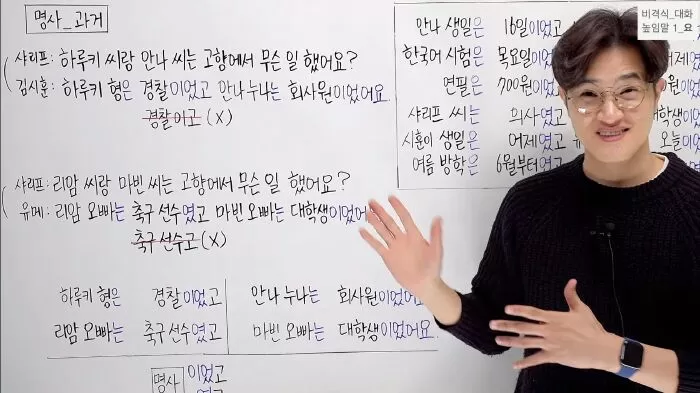 명사_과거
샤리프: 하루키 씨랑 안나 씨는 고향에서 무슨 일 했어요?
김시훈: 하루키 형은 경찰이었고 안나 누나는 회사원이었어요.
경찰이고 (X)
샤리프: 리암 씨랑 마빈 씨는 고향에서 무슨 일 했어요?
유메: 리암 오빠는 축구 선수였고 마빈 오빠는 대학생이었어
축구 선수고 (X)
하루키 형은 경찰이었고 안나 누나는 회사원이었어
리암 오빠는 축구 선수였고 마빈 오빠는 대학생이었어요.
명사 이었고
였고
안나 생일은 16일이었고
한국어 시험은 목요일이었
연필은 700원이었고
샤리프 씨는 의사였고 대학생이었
시훈이 생일은 어제였고 오늘이
여름 방학은 6월부터였고
비격식_대화
높임말 1_요